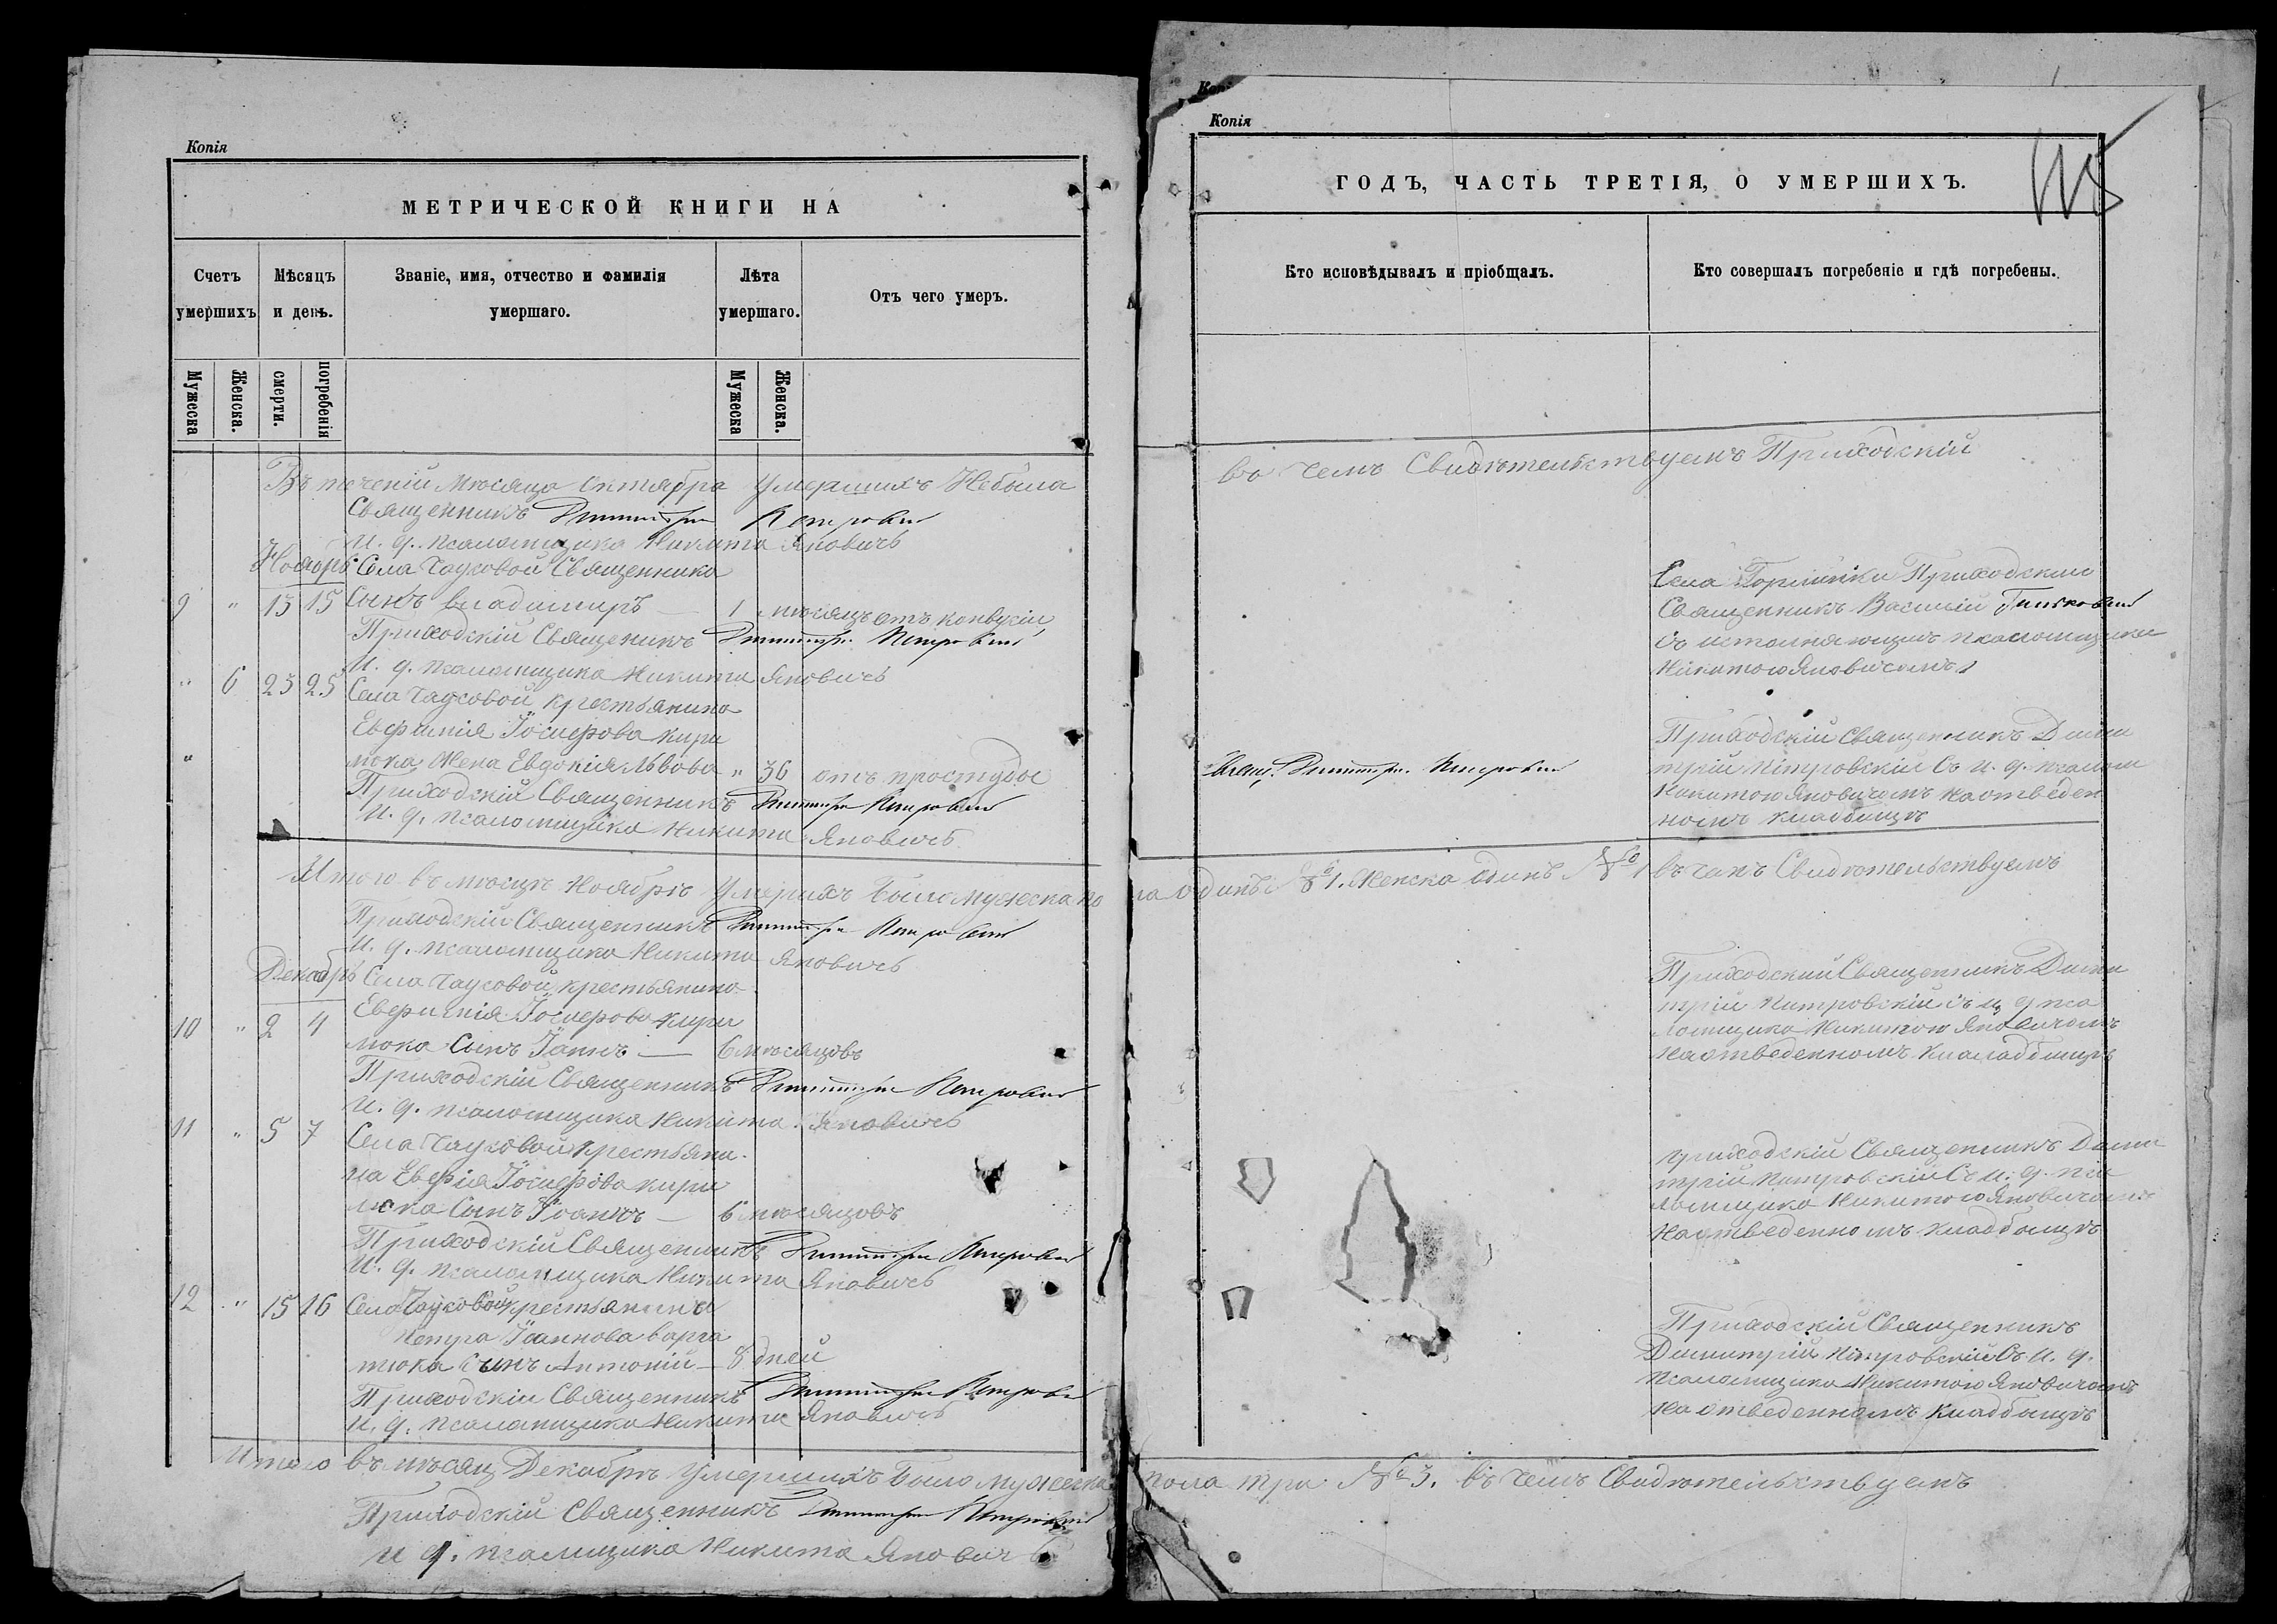 Копія
МЕТРИЧЕСКОЙ КНИГИ НА
Счетъ умершихъ
Мѣсяцъ и день.
Званіе, имя, отчество и фамилія умершаго.
Лѣта умершаго.
Отъ чего умеръ.
Мужеска
Женска.
смерти.
погребенія
Мужеска
Женска.
Въ теченій мѣсяца Октября Умершихъ Небыла
Священникъ Димитрій Петровскій
И. д. псаломщика Никита Яновичъ
Ноябрь Села Чаусовой Священника
9 " 13 15 Сынъ Владимиръ — 1 мѣсяцъ отъ конвулсіи
Приходскій Священикъ Димитрій Петровскій
И. д. псаломщика Никита Яновичъ
" 6 23 25 Села Чаусовой крестьянина
Евфимія Іосифова Кири
" люка Жена Евдокія Львова " 36 отъ простуды
Приходскій Священникъ Димитрій Петровскій
И. д. псаломщика Никита Яновичъ
Итого въ мѣсяцѣ Ноябрѣ Умершихъ Было Мужеска по
Приходскій Священникъ Димитрій Петровскій
И. д. псаломщика Никита Яновичъ
Декабрь Села Чаусовой крестьянина
Евфимія Іосифова Кири
10 " 2 4 люка Сынъ Іоаннъ — 6 мѣсяцовъ
Приходскій Священникъ Димитрій Петровскій
И. д. псаломщика Никита Яновичъ
11 " 5 7 Села Чаусовой Крестьяни
на Евфимія Іосифова Кири
люка Сынъ Іоаннъ — 6 мѣсяцовъ
Приходскій Священникъ Димитрій Петровскій
И. д. псаломщика Никита Яновичъ
12 " 15 16 Села Чаусовой крестьянина
Петра Іоаннова Варва
тюка Сынъ Антоній — 8 дней
Приходскій Священникъ Димитрій Петровскій
И. д. псаломщика Никита Яновичъ
Итого въ мѣсяц Декабрѣ Умершихъ Было Мужеска
Приходскій Священникъ Димитрій Петровскій
И д. псаломщика Никита Яновичъ
Копія
ГОДЪ, ЧАСТЬ ТРЕТІЯ, О УМЕРШИХЪ.
115
Кто исповѣдывалъ и пріобщалъ.
Кто совершалъ погребеніе и гдѣ погребены.
въ чемъ Свидѣтельствуемъ Приходскій
Приходскій
Священникъ Василій
Съ исполняющимъ псаломщика
Никитою Яновичемъ
Приходскій Священникъ Дими
Свящ. Димитрій Петровскій
трій Петровскій Съ И. д. псалом
Никитою Яновичемъ на отведен
номъ кладбищѣ
ла одинъ № 1. Женска одинъ № 1 въ чемъ Свидѣтельствуемъ
Приходскій Священникъ Дими
трій Петровскій съ и. д. пса
ломщика Никитою Яновичемъ
на отведенномъ кладбищѣ
Приходскій Священникъ Дими
трій Петровскій Съ И. д. пса
ломщика Никитою Яновичемъ
на отведенномъ кладбищѣ
Приходскій Священникъ
Димитрій Петровскій Съ И. д.
псаломщика Никитою Яновичемъ
на отведенномъ кладбищѣ
пола три № 3. въ чемъ Свидѣтельствуемъ